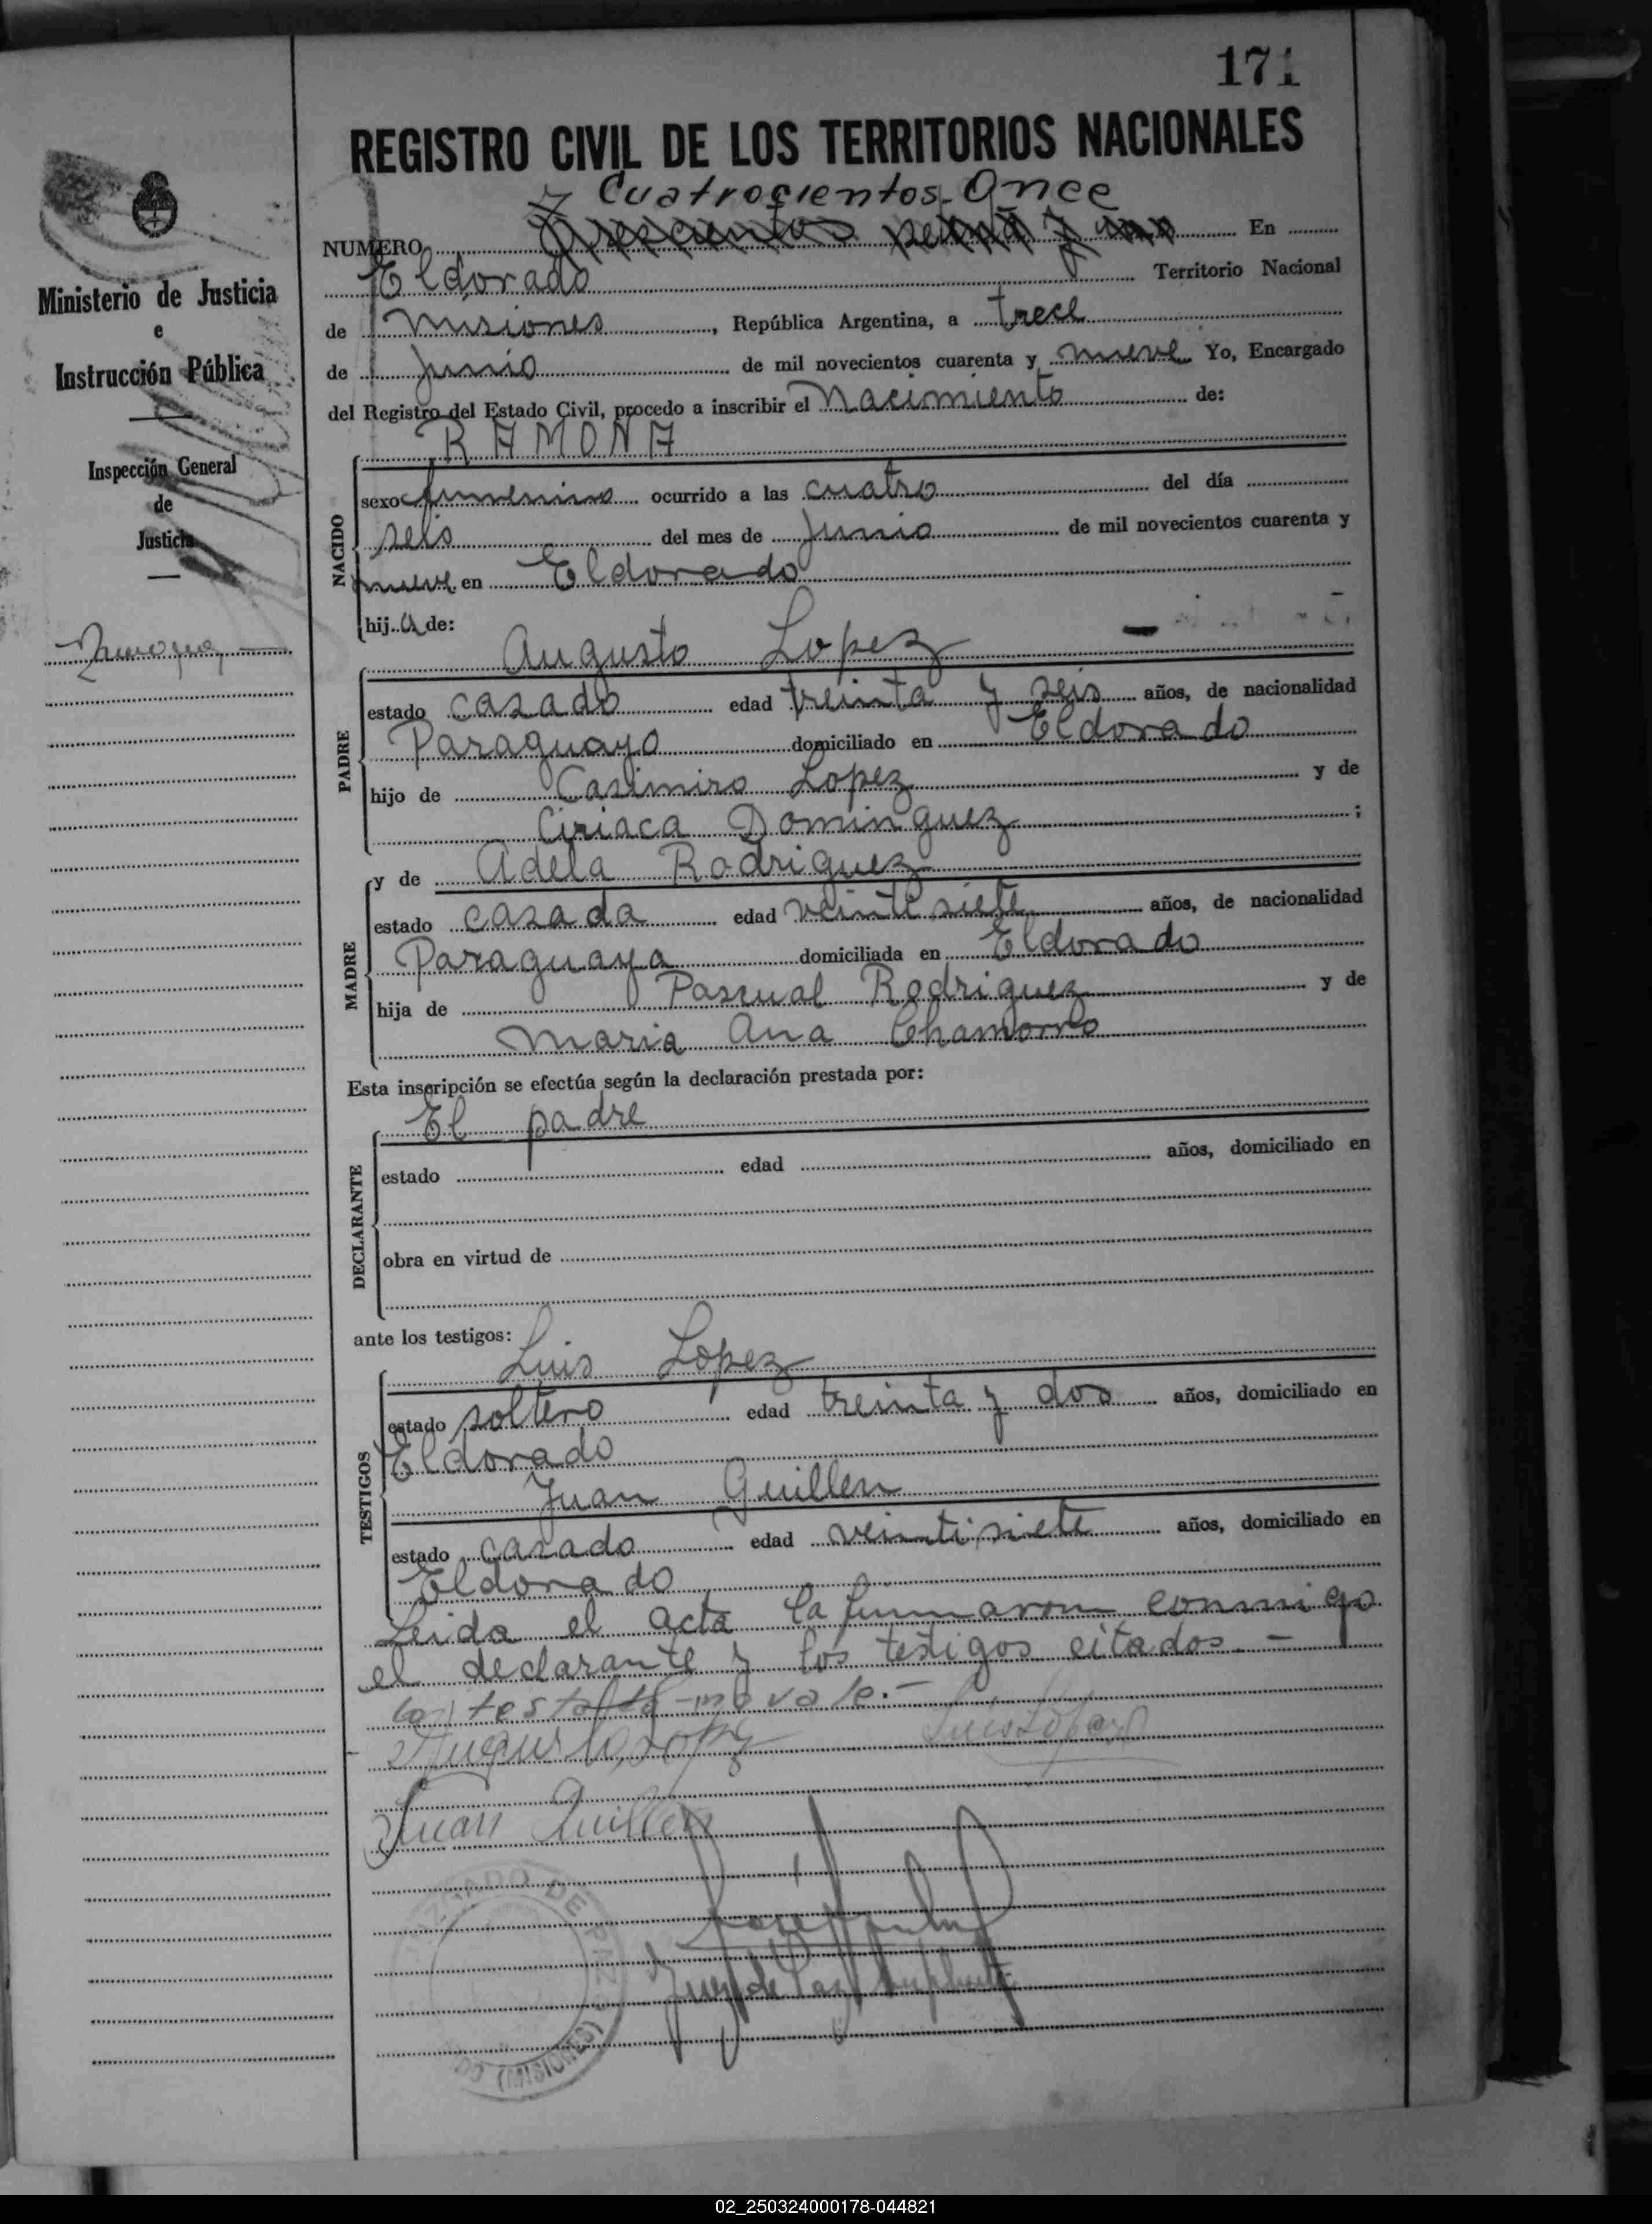 171
REGISTRO CIVIL DE LOS TERRITORIOS NACIONALES
y Cuatrocientos Once
NUMERO Trescientos y uno En
Eldorado Territorio Nacional
de Misiones, República Argentina, a trece
de Junio de mil novecientos cuarenta y nueve Yo, Encargado
del Registro del Estado Civil, procedo a inscribir el Nacimiento de:
RAMONA
NACIDO
sexo femenino ocurrido a las cuatro del día
seis del mes de Junio de mil novecientos cuarenta y
nueve en Eldorado
hija de:
Augusto Lopez
PADRE
estado casado edad treinta y seis años, de nacionalidad
Paraguayo domiciliado en Eldorado
hijo de Casimiro Lopez y de
Ciriaca Dominguez ;
MADRE
y de Adela Rodriguez
estado casada edad veinte siete años, de nacionalidad
Paraguaya domiciliada en Eldorado
hija de Pascual Rodriguez y de
Maria Ana Chamorro
Esta inscripción se efectúa según la declaración prestada por:
El padre
DECLARANTE
estado edad años, domiciliado en
obra en virtud de
ante los testigos:
Luis Lopez
TESTIGOS
estado soltero edad treinta y dos años, domiciliado en
Eldorado
Juan Guillen
estado casado edad veintisiete años, domiciliado en
Eldorado
Leida el acta la firmaron conmigo
el declarante y los testigos citados.-
Lo testado no vale.-
Augusto Lopez Luis Lopez
Juan Guillen
Juez de Paz Suplente
JUZGADO DE PAZ
DO (MISIONES)
Ministerio de Justicia
e
Instrucción Pública
Inspección General
de
Justicia
02_250324000178-044821